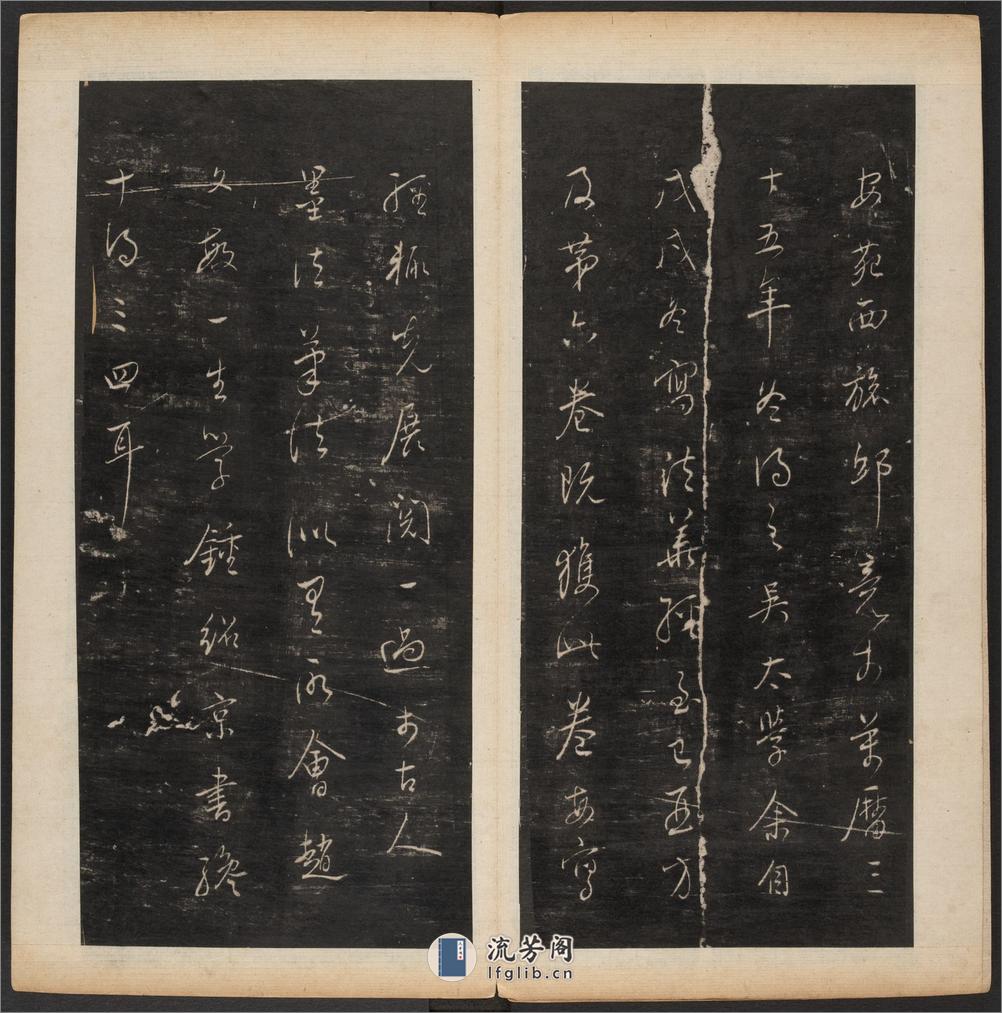 安苑西旅邸竟于萬曆三
十五年冬得之吳太學余自
戊戌冬寫法華經至己酉方
及第六卷既獲此卷每寫
經輒先展閱一過于古人
墨法筆法似有所會趙
文敏一生學鍾紹京書纔
十得三四耳
流芳阁
lfglib.cn